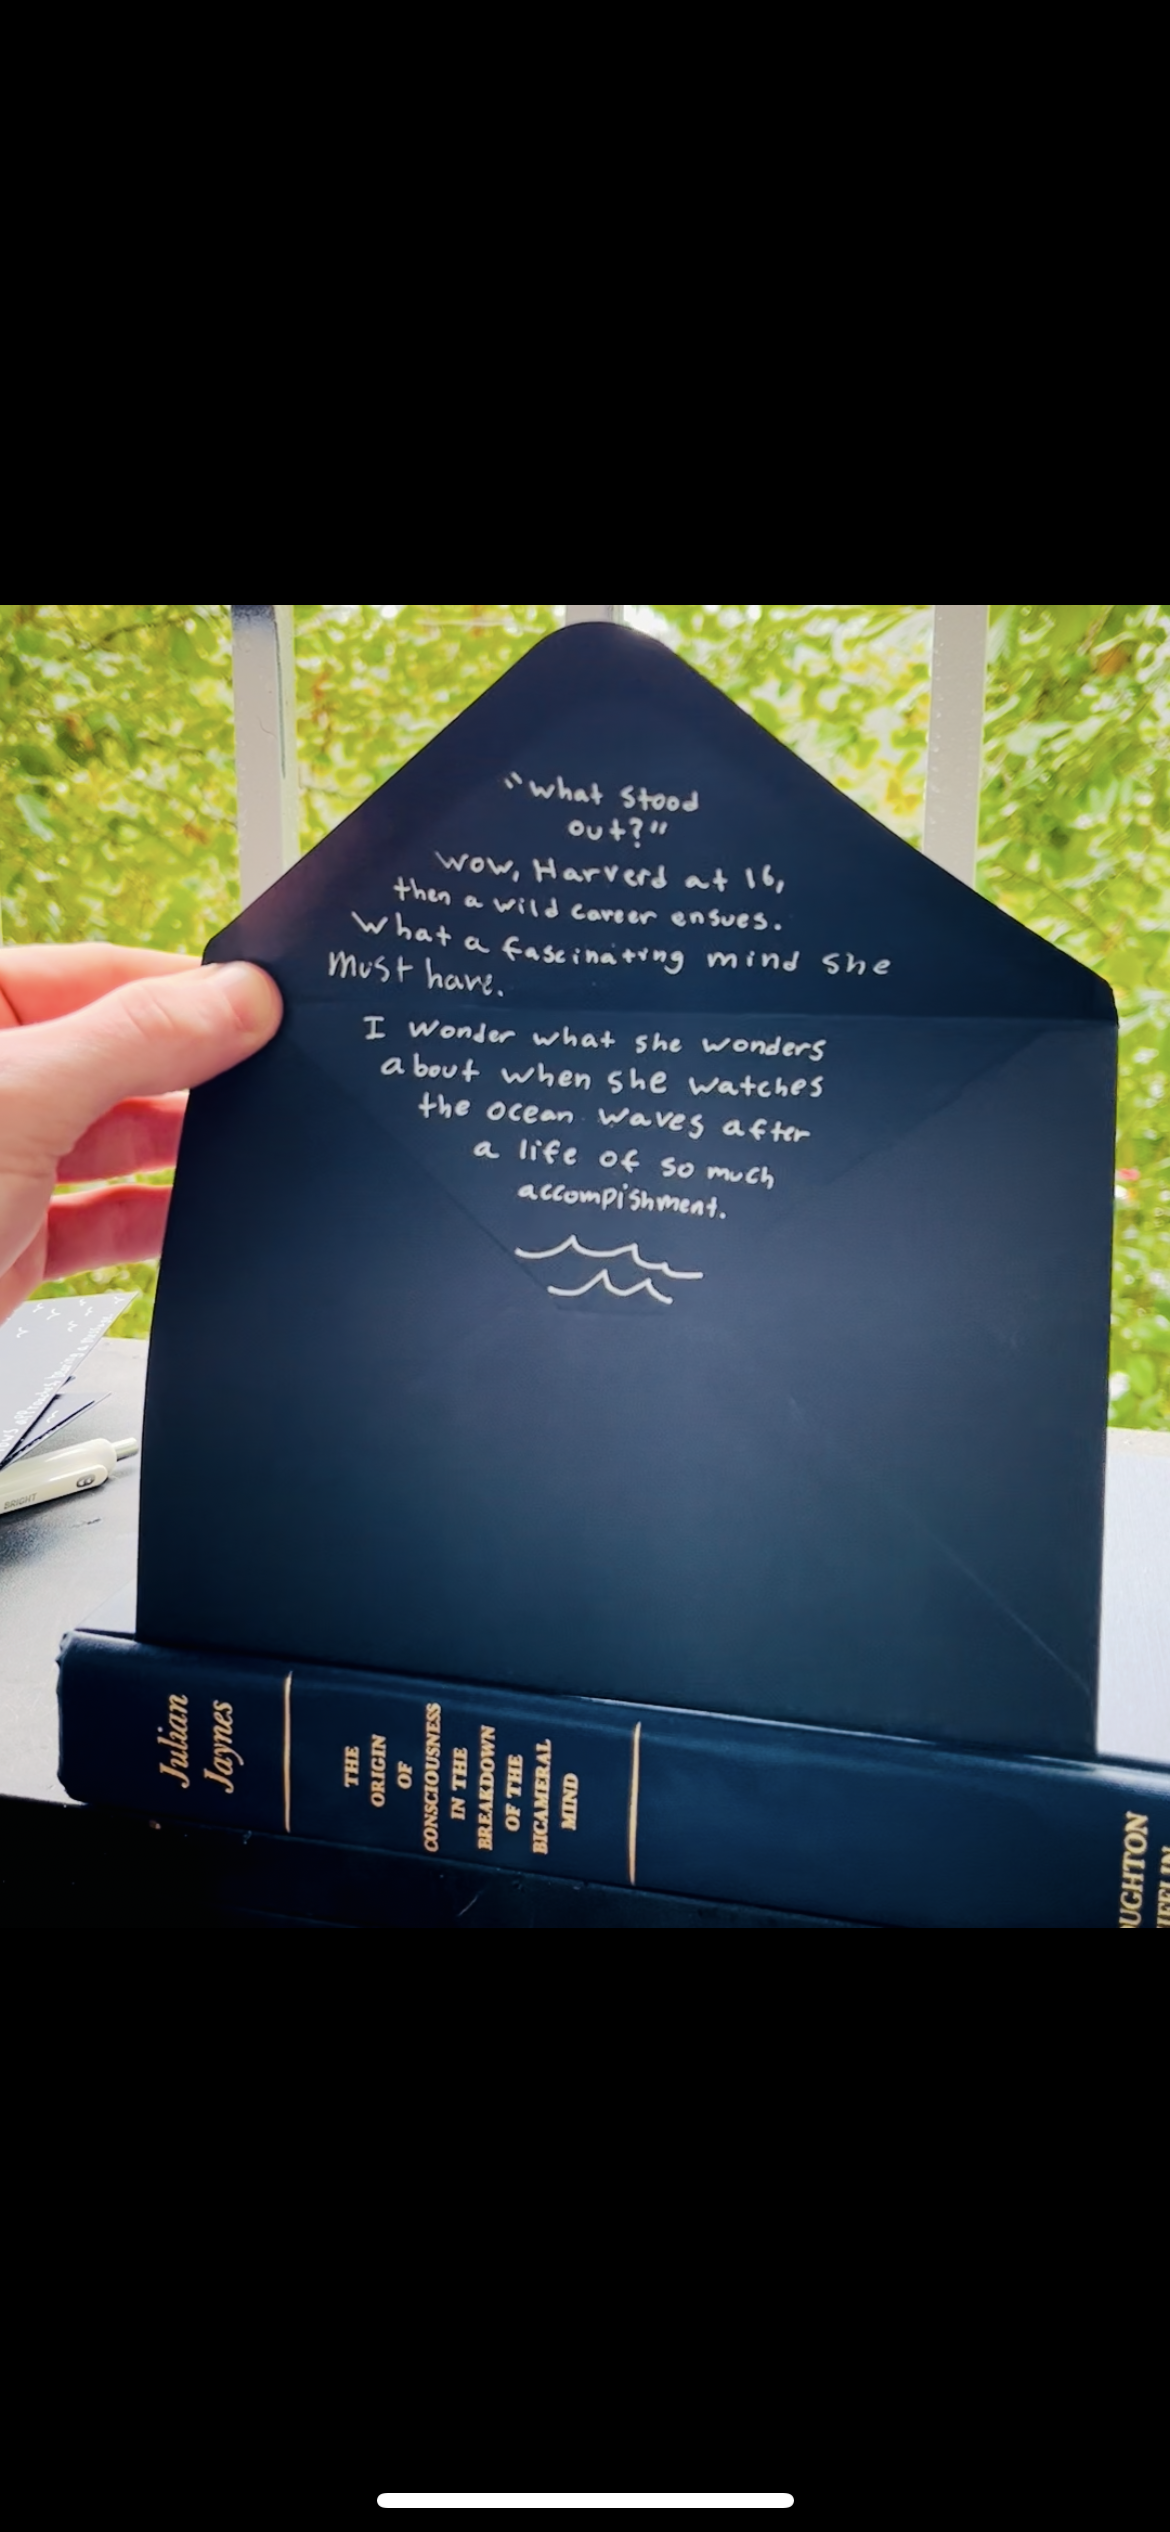 "What Stood
out?"
Wow, Harverd at 16,
then a wild career ensues.
What a fascinating mind she
Must have.
I wonder what she wonders
about when she watches
the ocean waves after
a life of so much
accompishment.
BRIGHT
Julian
Jaynes
THE
ORIGIN
OF
CONSCIOUSNESS
IN THE
BREAKDOWN
OF THE
BICAMERAL
MIND
OUGHTON